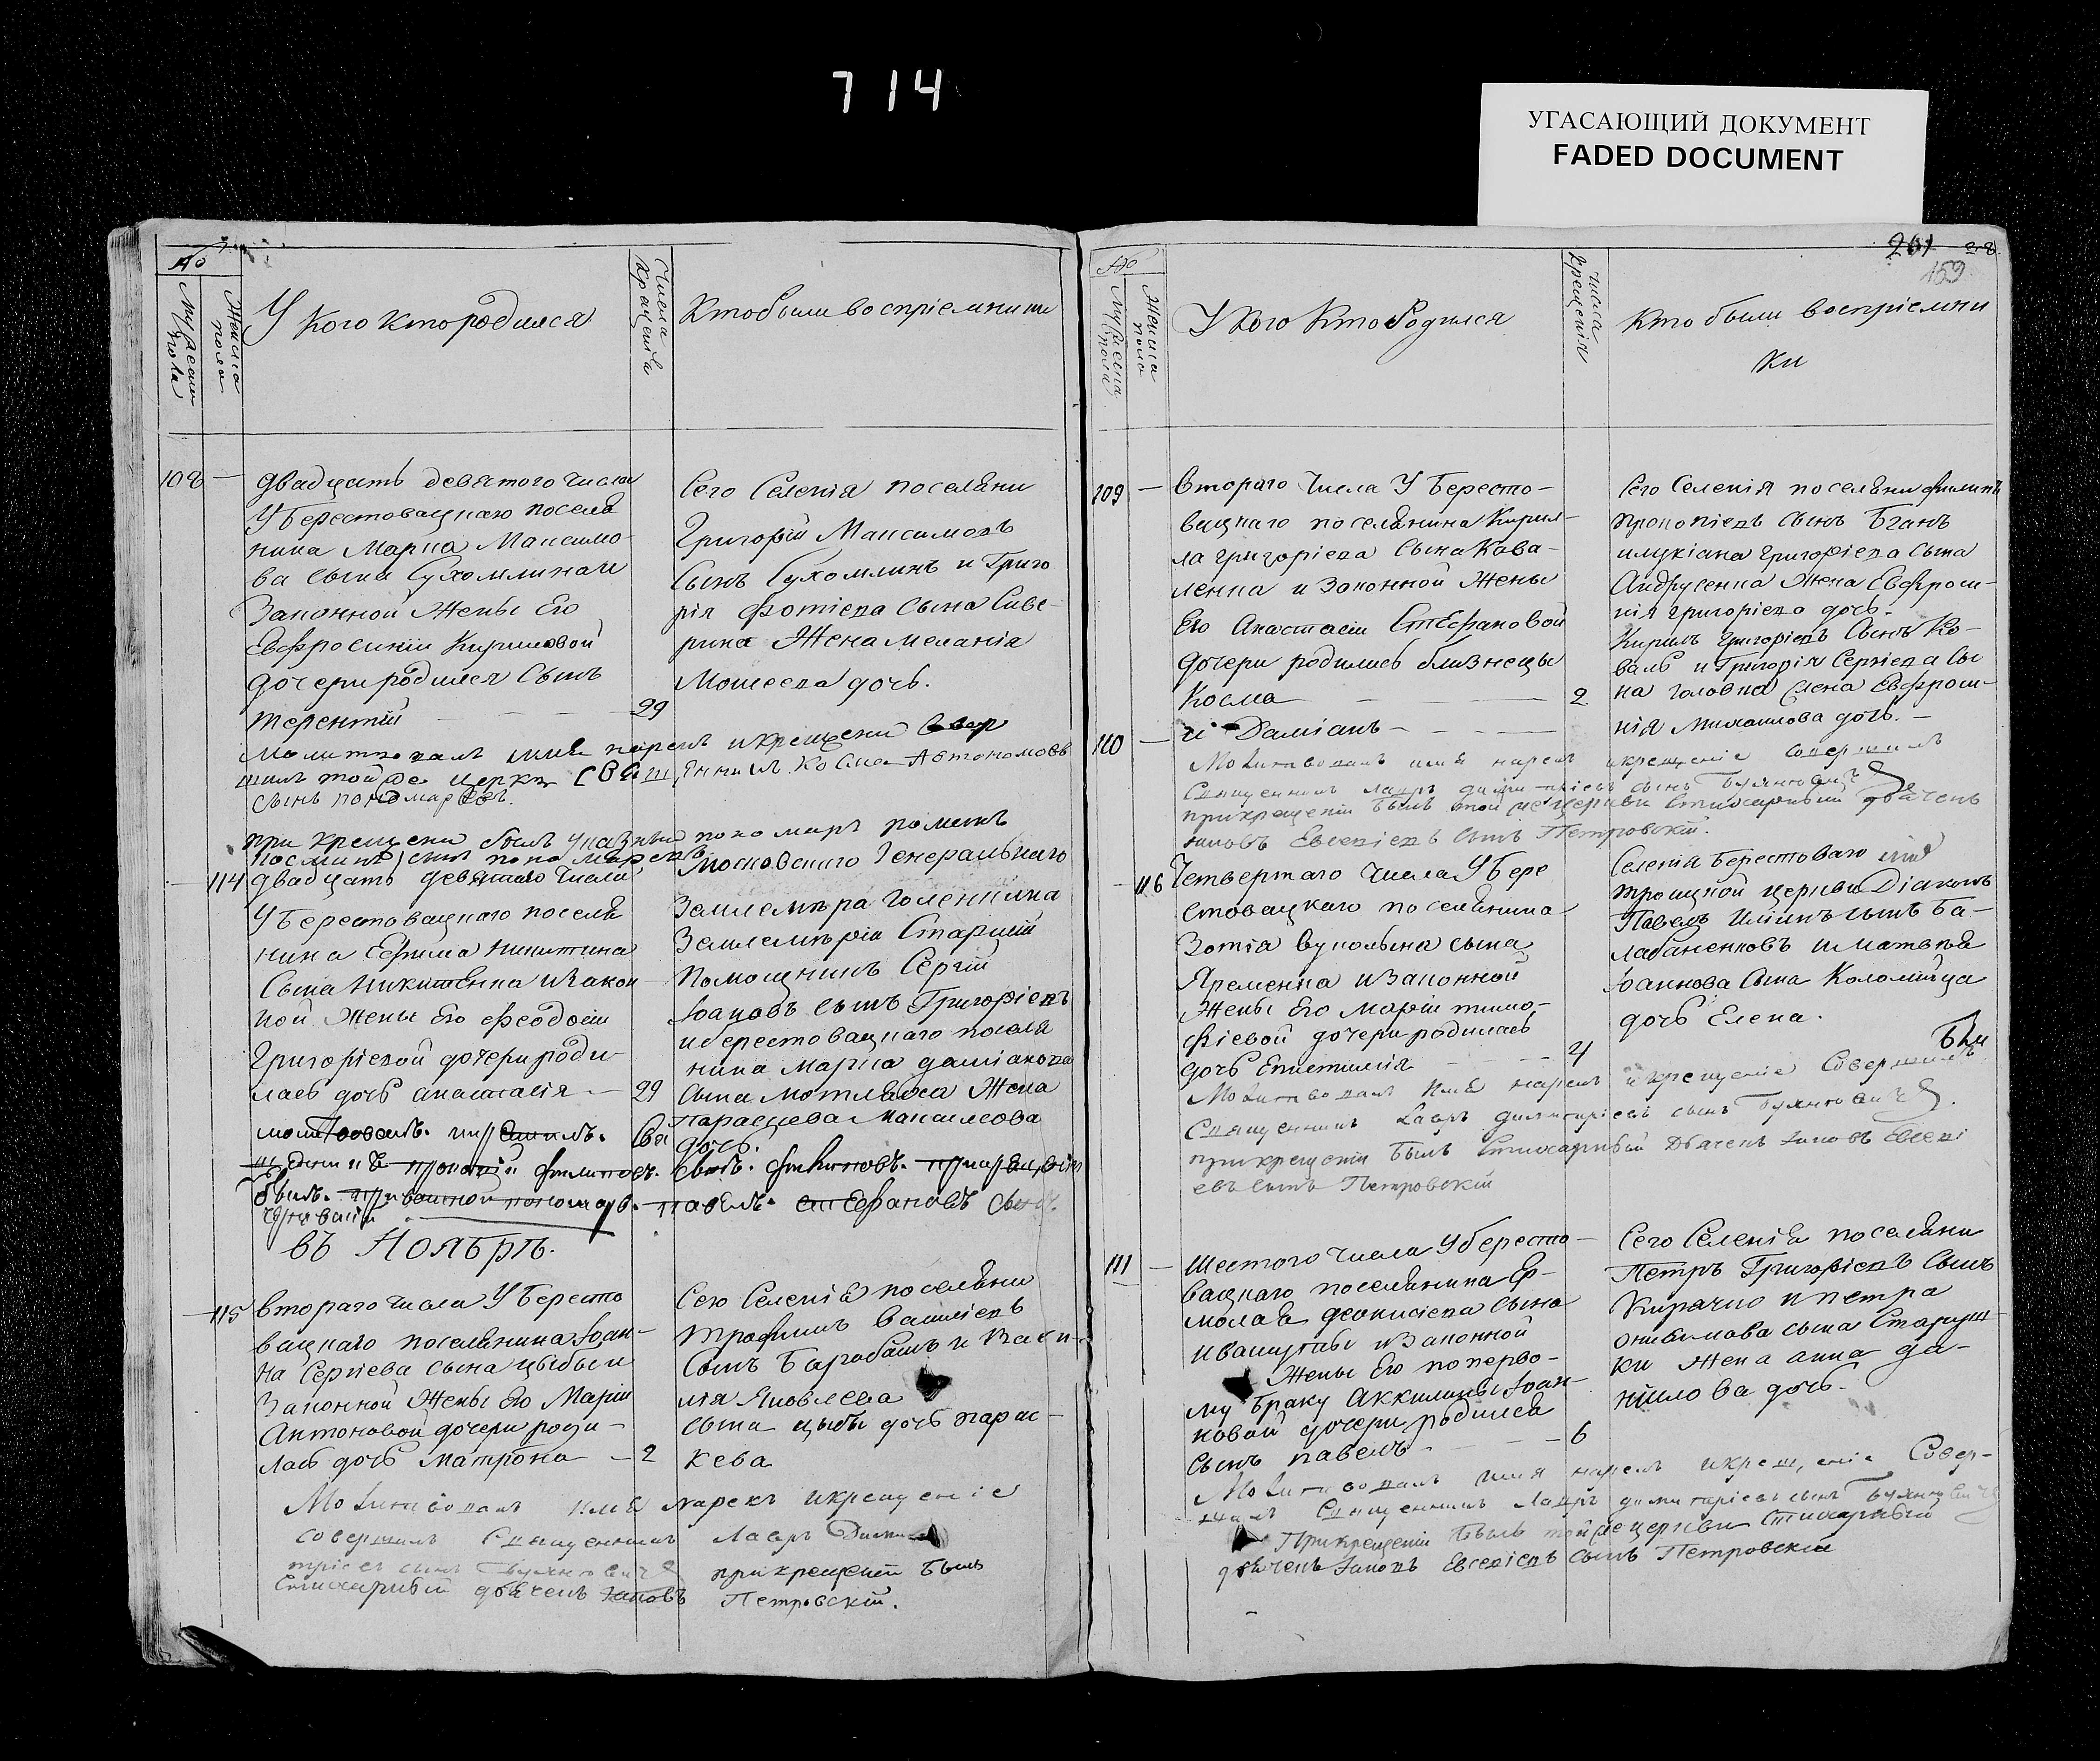 714
УГАСАЮЩИЙ ДОКУМЕНТ
FADED DOCUMENT
№
Мужеска пола
Женска пола
У кого кто родился
Числа крещенія
Кто были воспріемники
108 — двадцать девятого числа
У Берестовацкаго поселя
нина Марка Максимо-
ва сына Сухомлина и
Законной Жены Его
Евфросиніи Кириловой
дочери родился Сынъ
терентій — 29
Сего Селенія поселяни
Григорій Максимовъ
Сынъ Сухомлинъ и Григо
рія Фотіева Сына Сиве-
рина Жена Меланія
Моисеева дочь.
молитвовалъ имя нарекъ и крещени
шилъ тойже церкви Священникъ Косма Автономовъ
сынъ пономаревъ.
при крещени былъ указный пономарь романъ
сынъ пономаревъ.
— 114 двадцать девятаго числа
У Берестовацкаго поселя
нина Ефима Никитина
Сына Никитенка и Закон
ной Жены Его Феодосіи
Григоріевой дочери роди-
лась дочь анастасія — 29
Московскаго Генеральнаго
Землемера Голенкина
Землемерія Старшій
Помощникъ Сергій
Іоановъ сынъ Григоріевъ
и берестовацкаго поселя
нина Марка даміанова
сына Мотляха Жена
Параскева Мануилова
дочь.
филиповъ. сынъ. филиновъ.
былъ. приватной пономарь. павелъ. стефановъ сынъ
въ Ноябрѣ.
— 115 втораго числа У Бересто
вацкаго поселянина Іоан-
на Сергіева сына цыбы и
Законной Жены Его Маріи
Антоновой дочери роди-
лась дочь Матрона — 2
Сего Селенія поселяни
трофимъ васіліевъ
сынъ Барабашъ и Васи-
лія Яковлева
сына цыбы дочь парас-
кева
Молитвовалъ имя нарекъ и крещеніе
совершилъ Священникъ Лавръ Дими
тріевъ сынъ при крещеніи былъ
Стихарный дьячекъ Іаковъ Петровскій.
261 38
159
№
Мужеска пола
Женска пола
У Кого Кто Родился
Числа крещенія
Кто были воспріемни
ки
109 — втораго Числа У Бересто-
вацкаго поселянина Кирил-
ла григоріева Сына Кова-
ленка и Законной Жены
Его Анастасіи Стефановой
дочери родились близнецы
Косма — 2
110 — и Даміанъ —
Сего Селенія поселяни филипъ
прокопіевъ сынъ Бганъ
илукіана григоріева сына
Андрусенка Жена Евфроси-
нія григоріева дочь.
Кирилъ григоріевъ Сынъ Ко-
валь и Григорія Сергіева Сы
на головка Жена Евфроси-
нія Михаилова дочь. —
Молитвовалъ имя нарекъ и крещеніе совершилъ
Священникъ лавръ димитріевъ сынъ
при крещеніи былъ той же церкви Стихарный дьячекъ
Іаковъ Евсевіевъ сынъ Петровскій.
— 116 Четвертаго Числа У Бере
стовацкаго поселянина
Зотія Вукольина сына
Яременка и Законной
Жены Его Маріи тимо-
фіевой дочери родилась
дочь Епистимія — 4
Селенія Берестоваго
троицкой церкви Діаконъ
Павелъ Иліинъ сынъ Ба-
лабаненковъ и Матвѣя
Іоаннова Сына Коломійца
дочь Елена.
Молитвовалъ имя нарекъ и крещеніе Совершилъ
Священникъ Лавръ димитріевъ сынъ
при крещеніи былъ Стихарный дьячекъ Іаковъ Евсеві
евъ сынъ Петровскій
111 — Шестого числа У бересто-
вацкаго поселянина Ер-
молая деонисіева сына
Ивашутбы и Законной
Жены Его по перво-
му браку Аккилины Іоан-
новой дочери родился
сынъ павелъ — 6
Сего Селенія поселяни
Петръ Григоріевъ Сынъ
Кирячко и петра
онисимова сына Старуш-
ки Жена анна да-
ниилова дочь.
Молитвовалъ имя нарекъ и крещеніе Совер-
шилъ Священникъ Лавръ димитріевъ сынъ
При крещеніи былъ той же церкви Стихарный
дьячекъ Іаковъ Евсевіевъ сынъ Петровскій